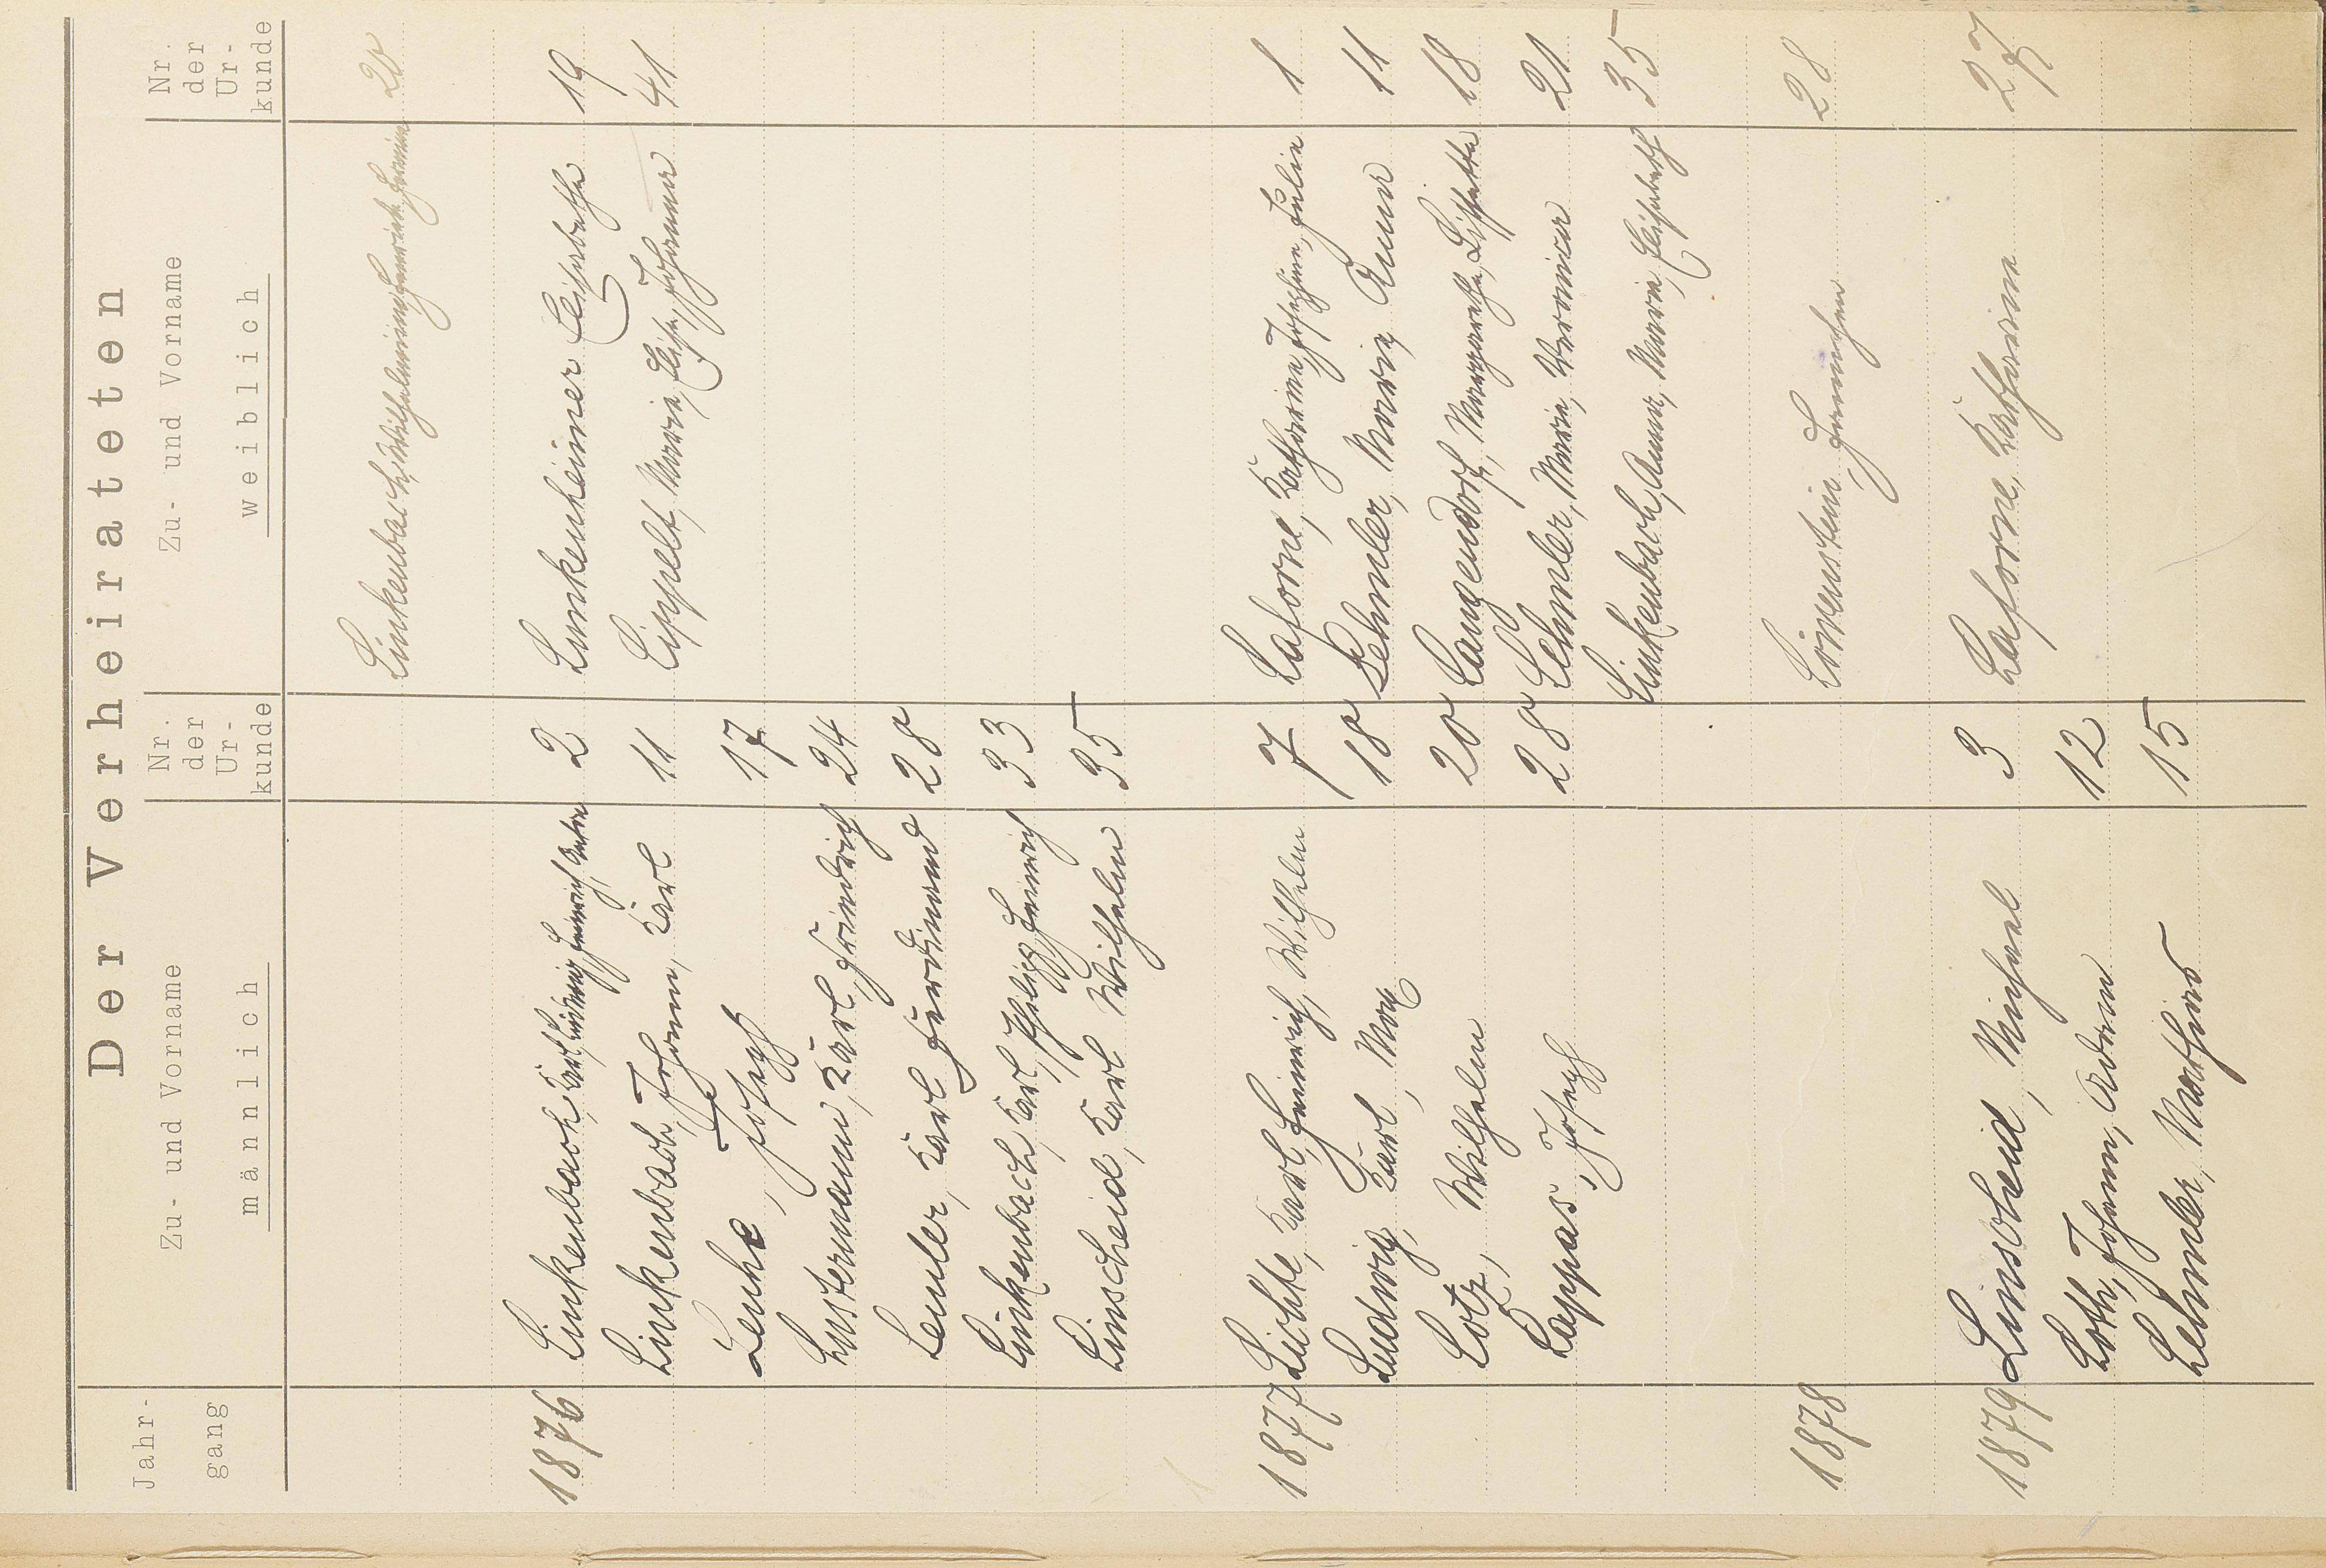 Der Verheirateten
Jahrgang Zu- und Vorname männlich Nr. der Urkunde Zu- und Vorname weiblich Nr. der Urkunde
Linkenbach, Wilhelmine, Henriette, Hermine 20
1876 Linkenbach, Karl, Ludwig, Heinrich, Anton 2 Linnkenheimer Elisabetha 19
Linkenbach, Johann, Karl 11 Lippelt, Maria, Elise, Johanna 41
Lenhe, Joseph 17
Lustermann, Karl, Friedrich 24
Lemler, Karl Ferdinand 28
Linkenbach, Karl, Philipp, Heinrich 33
Linscheid, Karl Wilhelm 35
1877 Lichte, Karl, Heinrich, Wilhelm 7 Laforne, Katharina, Josephine, Julie 1
Ludwig, Karl, Max 18 Lehmler, Maria Anna 11
Lotz, Wilhelm 20 Langendorf, Margaretha, Lisetta 18
Lappas, Joseph 28 Lehmler, Maria, Veronica 21
Linkenbach, Anna, Maria, Elisabeth 35
1878 Löwenstein, Hannchen 28
1879 Linscheid, Michael 3 Laforne, Katharina 27
Loth, Johann, Adam 12
Lehmler, Mathias 15